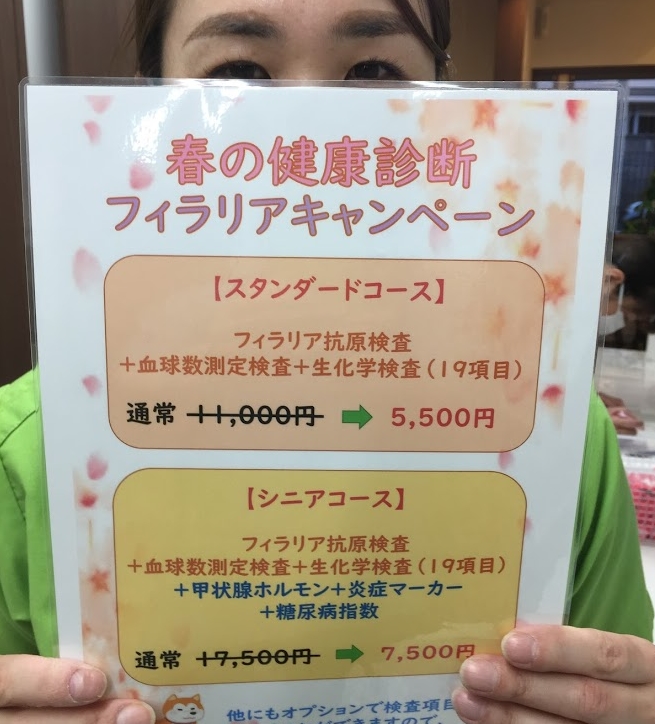 春の健康診断
フィラリアキャンペーン
【スタンダードコース】
フィラリア抗原検査
＋血球数測定検査＋生化学検査（19項目）
通常 11,000円 → 5,500円
【シニアコース】
フィラリア抗原検査
＋血球数測定検査＋生化学検査（19項目）
＋甲状腺ホルモン＋炎症マーカー
＋糖尿病指数
通常 17,500円 → 7,500円
他にもオプションで検査項目
ができますので、